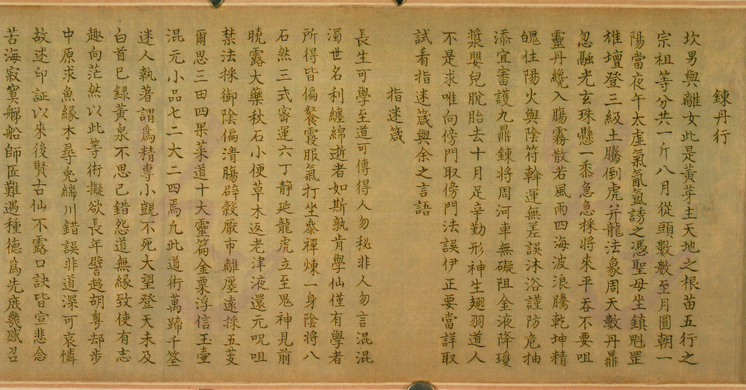 鍊丹行
坎男與離女此是黃芽主天地之根苗五行之
宗祖等分共一斤八月從頭數數至月圓朝一
陽當夜午太虛氣氤氳請之憑聖母坐鎮魁罡
雄壇登三級土騰倒虎并龍法象周天數丹鼎
忽融光玄珠懸一黍急急採將來平吞不要咀
靈丹纔入腸霧散若風雨四海波浪騰乾坤精
魄住陽火與陰符斡運無差誤沐浴謹防危抽
添宜審護九鼎鍊將周河車無礙阻金液降瓊
漿嬰兒脫胎去十月足辛勤形神生翅羽道人
不是求唯向傍門取傍門法誤伊正要當詳取
試看指迷箴與余之言語
指迷箴
長生可學至道可傳得人勿秘非人勿言混混
濁世名利纏綿逝者如斯孰肯學仙僅有學者
所得皆偏餐霞服氣打坐參禪煉一身陰將八
石煎三式密運六丁靜延龍虎立至鬼神見前
曉露大藥秋石小便草木返老津液還元呪咀
禁法採御陰偏清腸辟穀廠市離廛遠採五芝
爾思三田四果菜道十大靈篇金粟浮信玉壼
混元小品七二大二四焉九此道術萬蹄千筌
迷人執著謂爲精專小覬不死大望登天未及
白首已録黃泉不思己錯怨道無緣致使有志
趣向茫然以此等術擬欲長年譬趍胡粤却步
中原求魚緣木尋兎緣川錯誤非道深可哀憐
故述印証以來後賢古仙不露口訣皆宣悲念
苦海寂寞艤船師匠難遇種德爲先庶幾感召